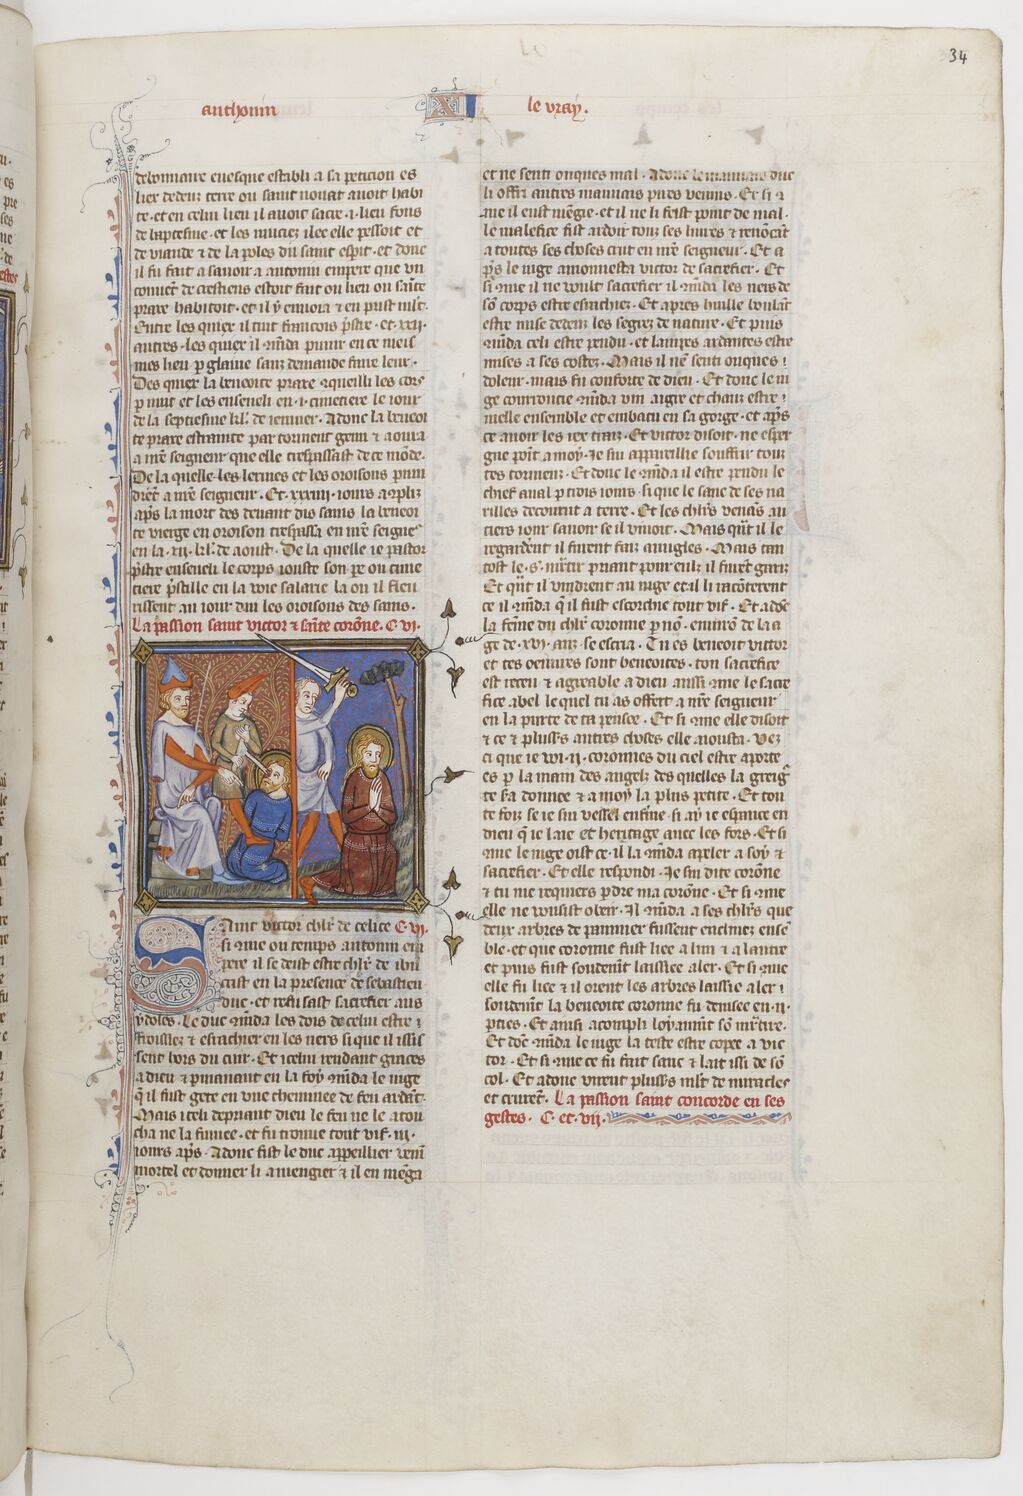 34
anthonin XI le vray.
debonnaire euesque establi a sa peticion es
lieu dedenz terre ou saint nouat auoit habi
te · et en celui lieu il auoit sacre · i · lieu fons
de baptesme · et les muciez ilec elle pessoit et
de viande ⁊ de la poles du saint espit · et donc
il fu fait a sauoir a antonin empere que vn
conuēt de crestiens estoit fait ou lieu ou saīte
praxe habitoit · et il y enuoia ⁊ en prist mlt̄ ·
Entre les quiex il tint simcons pstre · et · xxij ·
autres · les quiex il māda punir en ce meis
mes lieu p glaiue sanz demande faire leur ·
Des quiex la benooite praxe aqueilli les cors
p nuit et les enseueli en · i · cimetiere le iour
de la septiesme kl · de ieuuier · Adonc la benooi
te praxe estrainte par torment gemi ⁊ aoura
a nr̄e seigneur que elle trespassast de ce mōde ·
De la quelle les lermes et les oroisons pruu
drēt a nr̄e seigneur · Et · xxxiiij · iours acōpliz
aps la mort des deuant dis sains la benooi
te vierge en oroison trespassa en nr̄e seigne
en la · xij · kl · de aoust · De la quelle ie pastor
pstre enseueli le corps iouste son pe ou cime
tiere pscille en la voie salarie la ou il fleu
rissent au iour dui les oroisons des sains ·
La passion saint victor ⁊ saīte corōne · C · vj ·
Saint victor chlr de celice C · vj ·
si cōme ou temps antonin em
pere il se deist estre chlr de ihū
crist en la presence de sebastien
duc · et refusast sacrefier aus
ydoles · Le duc māda les dois de celui estre
froissiez ⁊ esrachier en les ners si que il issis
sent hors du cuir · Et icelui rendant graces
a dieu ⁊ pmanant en la foy māda le iuge
q il fust gete en vne cheminee de feu ardāt ·
Mais iceli depriant dieu le feu ne le atou
cha ne la fumee · et fu trouue tout vif · iij ·
iours aps · Adonc fist le duc appeillier venī
mortel et donner li a mengier ⁊ il en mēga
et ne senti onques mal · Adonc le mauuais duc
li offri autres mauuais pires venins · Et si
me il eust mēgie · et il ne li feist point de mal ·
le malefice fist ardoir touz ses liures ⁊ renōcāt
a toutes ses choses crut en nr̄e seigneur · Et a
ps le iuge amonnesta victor de sacrefier · Et
si cōme il ne voult sacrefier il māda les ners de
sō corps estre esrachiez · Et apres huille boulāt
estre mise dedenz les segrez de nature · Et puis
māda celi estre pendu · et lampes ardantes estre
mises a ses costez · Mais il nē senti onques
doleur · mais fu conforte de dieu · Et donc le iu
ge courroucie māda vin aigre et chauz estre
mesle ensemble et embatu en sa gorge · et aps
ce auoir les iex traiz · Et victor disoit · ne esper
gne point a moy · Je sui appareillie souffrir touz
tes tormenz · Et donc le māda il estre pendu le
chief aual p trois iours · si que le sanc de ses na
rilles decourut a terre · Et les chlrs venās au
tiers iour sauoir se il viuoit · Mais qūt il le
regardent il furent faiz auugles · Mais tan
tost le · s · mrtir priant pour eulz il furēt gariz
Et qūt il vindrent au iuge et il li racōterent
ce il māda q il fust escorchie tout vif · Et adōc
la feme du chlr coronne p nō · enuirō de laa
ge de · xvj · anz · se escria · Tu es benooit victor
et tes oeuures sont benooites · ton sacrefice
est receu ⁊ agreable a dieu aussi cōme le sacre
fice abel le quel tu as offert a nr̄e seigneur
en la purte de ta pensee · Et si cōme elle disoit
⁊ ce ⁊ plusrs autres choses elle aiousta · Vez
ci que ie voi · ij · coronnes du ciel estre aporte
es p la main des angelz des quelles la greig
te sa donnee ⁊ a moy la plus petite · Et tou
te foiz se ie sui vessel enfme · si ay ie espance en
dieu q ie laie et heritage auec les fors · Et si
cōme le iuge oist ce · il la māda apeler a soy ⁊
sacrefier · Et elle respondi · Je sui dite corōne
⁊ tu me requiers pdre ma corōne · Et si cōme
elle ne vousist obeir · Il māda a ses chlrs que
deux arbres de paumier fussent enclinez ensē
ble · et que coronne fust liee a lun ⁊ a lautre
et puis fust soudenīt laissiee aler · Et si cōme
elle fu liee ⁊ il orent les arbres laissie aler
soudenīt la benooite coronne fu deuisee en · ij ·
pties · Et ainsi acompli loyaumīt sō mrtire ·
Et dōc māda le iuge la teste estre copee a vic
tor · Et si cōme ce fu fait sanc ⁊ lait issi de sō
col · Et adonc virent plusrs mlt̄ de miracles
et crurēt · La passion saint concorde en ses
gestes · C · et · vij ·